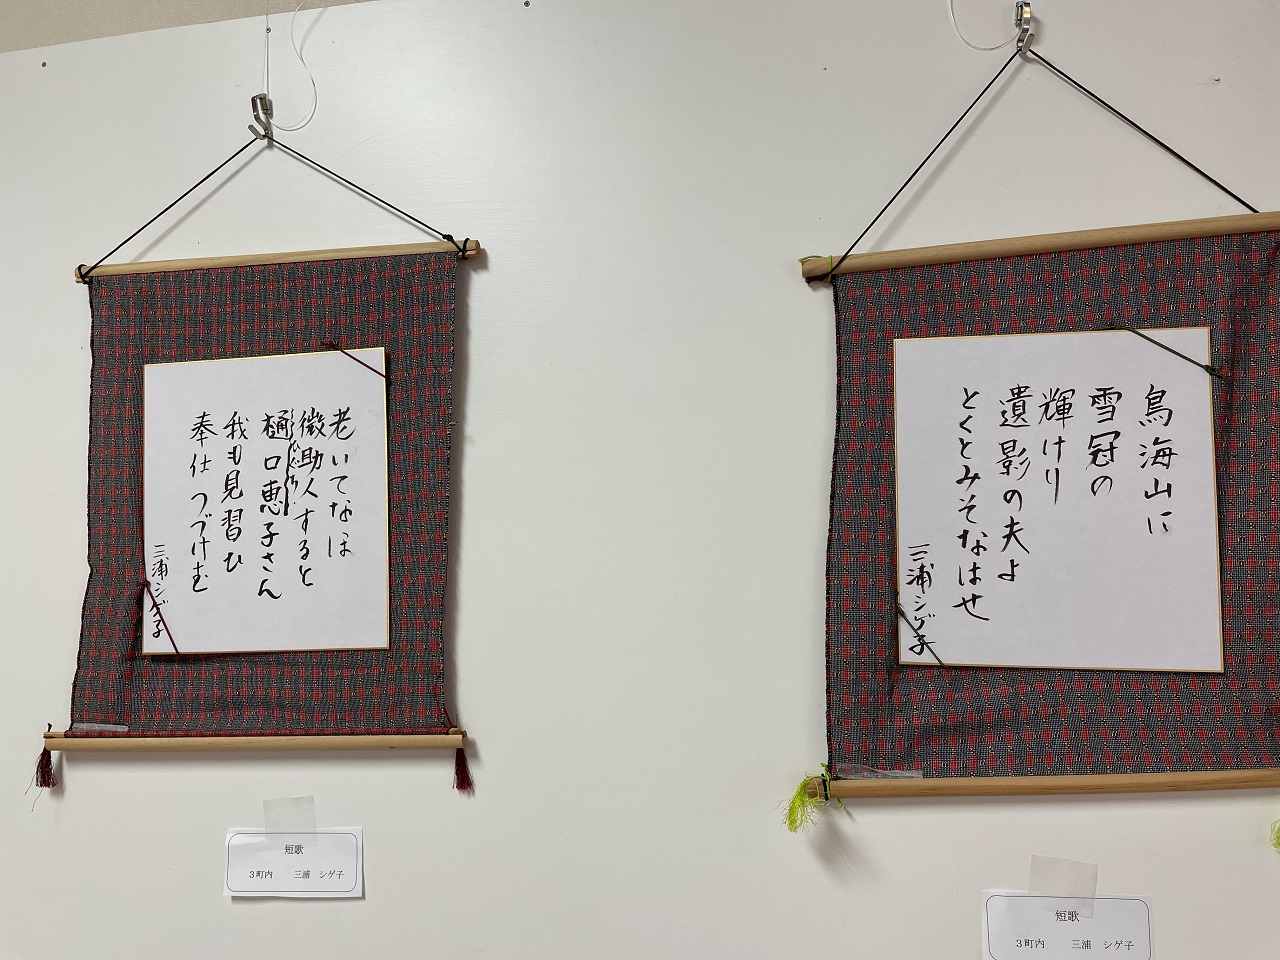 老いてなほ
微助人すると
ひぐち
樋口恵子さん
我も見習ひ
奉仕つづけむ
三浦シゲ子
短歌
3町内 三浦 シゲ子
鳥海山に
雪冠の
輝けり
遺影の夫よ
とくとみそなはせ
三浦シゲ子
短歌
3町内 三浦 シゲ子